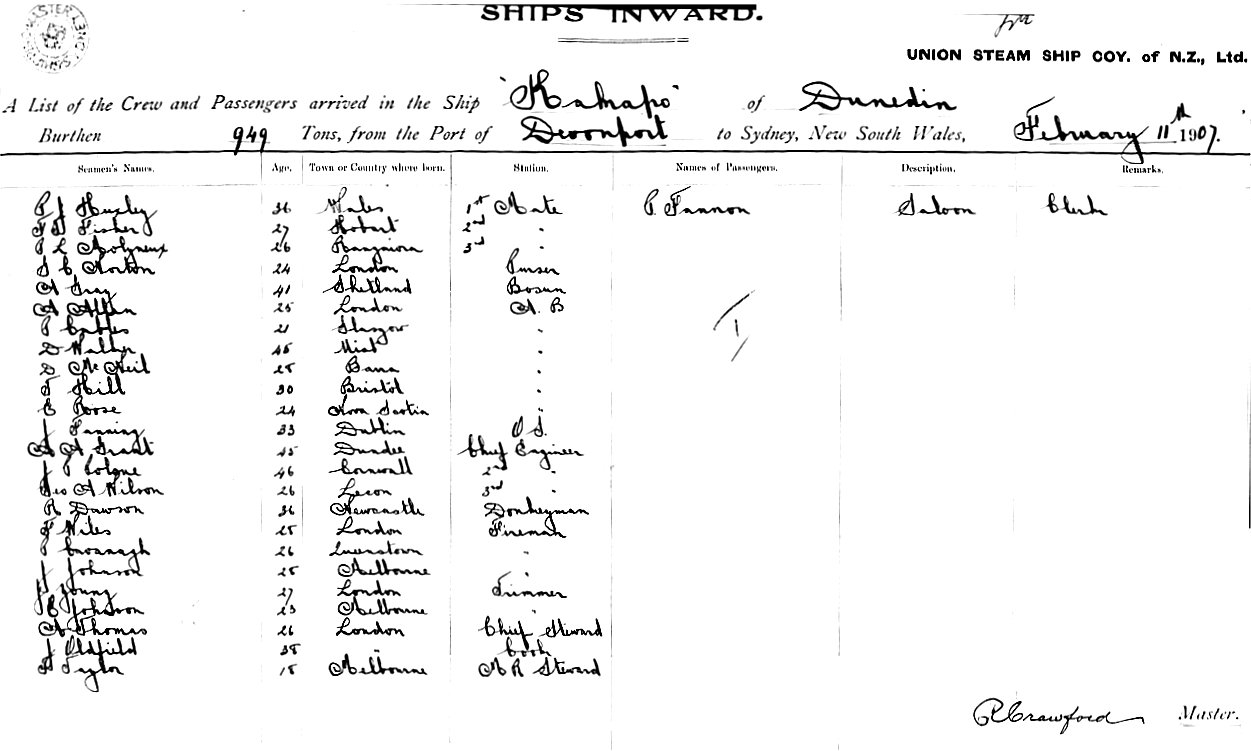 SHIPS INWARD.
UNION STEAM SHIP COY. of N.Z., Ltd.
A List of the Crew and Passengers arrived in the Ship "Kakapo" of Dunedin
Burthen 949 Tons, from the Port of Devonport to Sydney, New South Wales, February 11th 1907.
Seamen's Names. Age. Town or Country where born. Station. Names of Passengers. Description. Remarks.
P J Huxley 36 Wales 1st Mate P. Fannon Saloon Clerk
Fisher 27 Hobart 2nd "
P L Molyneux 26 Rangiora 3rd "
S C Norton 24 London Purser
A Gray 41 Shetland Bosun
A Allan 25 London A. B
P 21 Glasgow "
D Walker 45 "
D McNeil 25 Barra "
T Hill 30 Bristol "
E Roose 24 Nova Scotia "
J Fanning 33 Dublin O S.
A A Grant 45 Dundee Chief Engineer
J P 46 Cornwall 2nd "
Geo A Wilson 26 3rd "
R Dawson 36 Newcastle Donkeyman
F Wiles 25 London Fireman
P Cavanagh 26 Queenstown "
J Johnson 25 Melbourne "
J Young 27 London Trimmer
E Johnson 23 Melbourne "
A Thomas 26 London Chief Steward
J Oldfield 38 " Cook
H Taylor 18 Melbourne M R Steward
P Crawford Master.